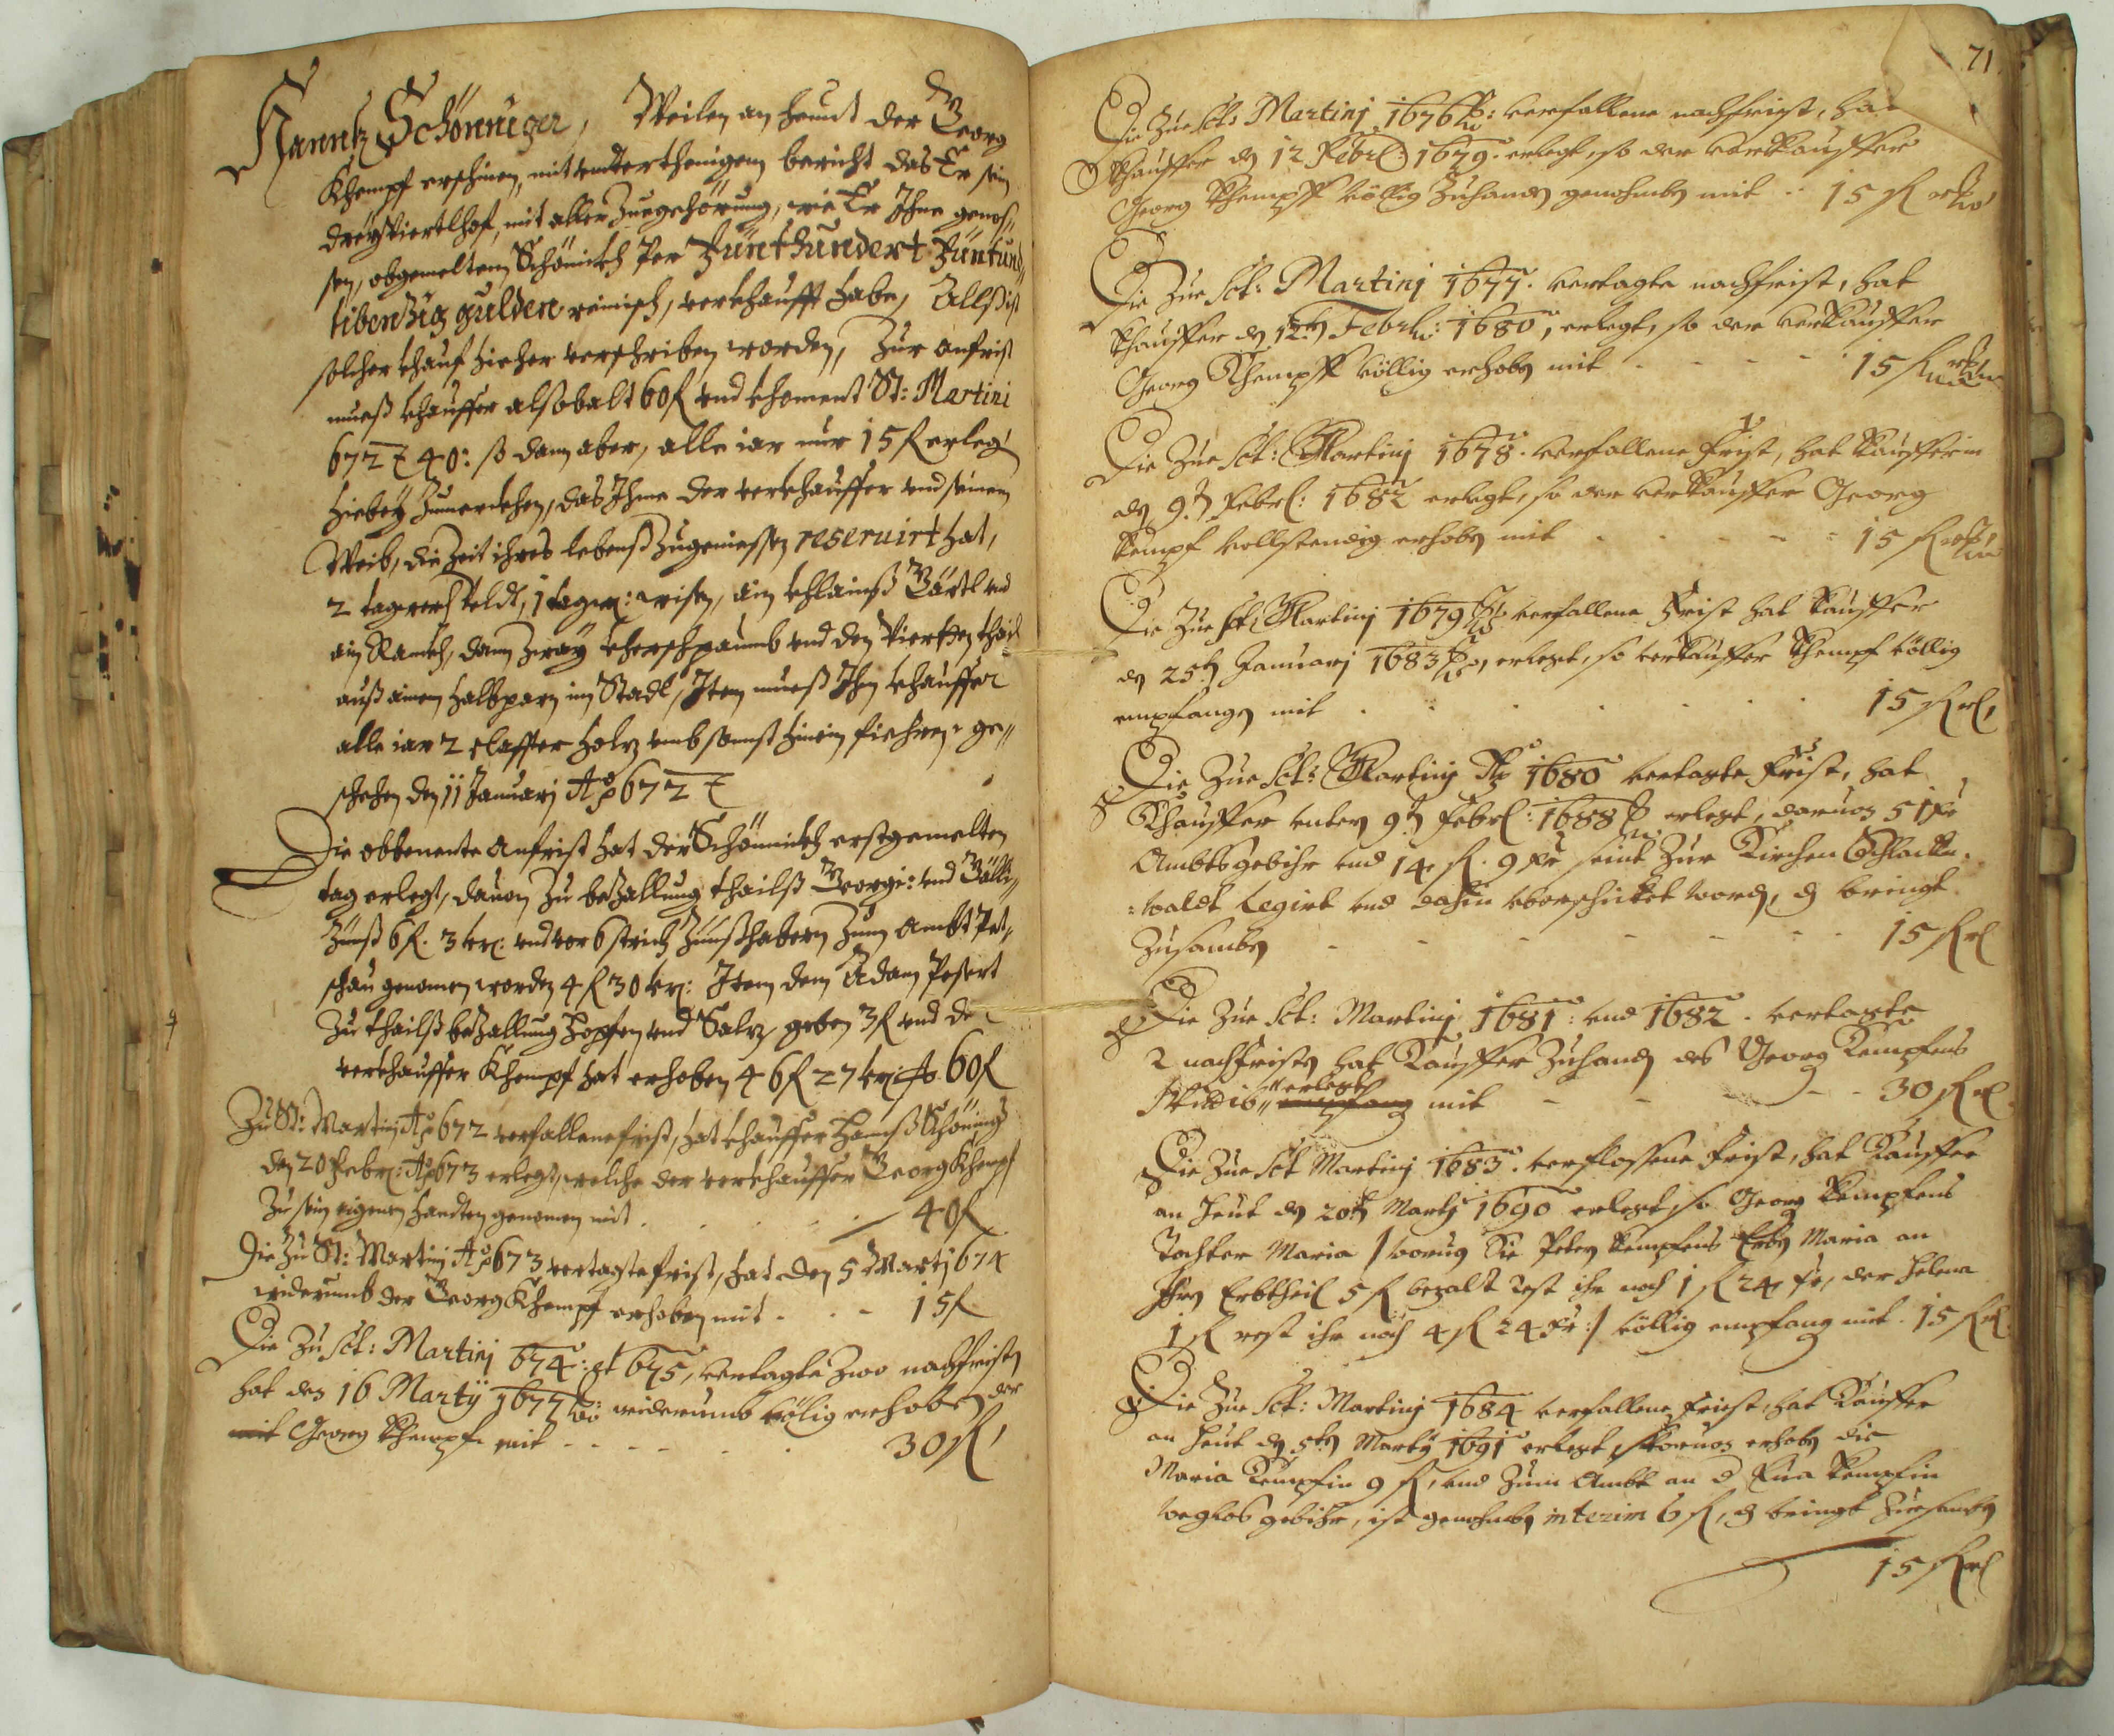 Hannß Schönniger, Weilen an heunt der Georg
Khempf erschinen, mit unterthenigem bericht das Er sein
dreyviertlhof, mit aller Zuegehörung, wie Er Ihne genos„
sen, obgemelten Schönickh per Fünfhundert Fünfund„
sibenzig gulden reinisch, verkhaufft habe, Allß ist
solcher khauf hieher verschriben worden, Zur anfrist
mueß khauffer alsobalt 60 f und khoment St: Martini
672 40: so dann aber, alle iar nur 15 f erleg
hiebey Zumerckhen, das Ihme der verkhauffer und seinem
Weib, die Zeit ihres lebenß Zugeniessen reseruirt hat,
2 tagwerch Feldt, 1 tagw: wisen, ein khlainß Gärtl und
ein Kamer, dann zway khersch paumb und den Vierthen thail
auß einem halbparn im Stadl, Item mueß Ihm khauffer
alle iar 2 Claffter holz umbsonst hinein fiehren, ge„
schehen den 11 January Ao 672
Die obbenente Anfrist hat der Schönnickh erstgemelten
tag erlegt, dauon Zu bezallung thailß Georgi: und Galli„
Zünß 6 f. 3 kr: und vor 6 strich Zünßhabern Zum Ambt Pet„
schau genomen worden 4 f 30 kr: Item dem Adam Pesert
Zu thailß bezallung Hopfen und Salz geben 3 f und de
verkhauffer Khempf hat erhoben 46 f 27 kr 60 f
Zu St: Martinj Ao 672 verfallene frist, hat khauffer Hannß Schönnig
den 20 Febr: Ao 673 erlegt, welche der verkhauffer Georg Khempf
Zu sein eigenen Handten genomen mit . . . 40 f
Die Zu St: Martinj Ao 673 vertagte frist, hat den 5 Martj 674
widerumb der Georg Khempf erhoben mit . . - 15 f
Die Zu Sct: Martinj 674: et 675, vertagte zwo nachfristen
hat den 16 Martÿ 1677 widerumb völig erhoben der
mit Georg Khempf mit - - - - 30 f
71
Die Zue Sct: Martinj 1676 verfallene nachfrist, hat
Khauffer den 12 Febr: 1679. erlegt, so der verkauffer
Georg Khempff völlig Zuhanden genohmben mit .. 15 f
Die Zue Sct: Martinj 1677. vertagte nachfrist, hat
Khauffer den 12ten Febr: 1680, erlegt, so der verkauffer
Georg Khempff völlig erhoben mit - - - - 15 f
Die Zue Sct: Martinj 1678. verfallene Frist, hat Kaufferin
den 9ten Febr: 1682 erlegt, so der verkauffer Georg
Kempf vollstendig erhoben mit - - - - 15 f
Die Zue Sct: Martinj 1679 verfallene Frist hat Kauffer
den 25ten Januarj 1683, erlegt, so verkauffer Khempf völlig
empfangen mit . . . . . 15 f
Die Zue Sct: Martinj 1680 vertagte Frist, hat
Khauffer untern 9ten Febr: 1688 erlegt, daruon 51 kr
Ambtsgebihr und 14 f. 9 kr seint Zur Kirchen Schlacken„
„waldt Legirt und dahin überschicket worden, bringt
Zusamben - - - - - - 15 f
Die Zue Sct: Martinj 1681: und 1682. vertagte
2 nachfristen hat Kauffer Zuhanden des Georg Kempfens
erlegt mit - - - - 30 f
Die Zue Sct Martinj 1683. verflossene Frist, hat Kauffer
an heut den 20ten Martj 1690 erlegt, so Georg Kempfens
Tochter Maria / woruon Sie Peter Kempfens Erben Maria an
Ihren Erbtheil 5 f bezalt rest ihr noch 1 f 24 kr, der Helena
1 f rest ihr noch 4 f 24 kr :/ völlig empfangen mit . 15 f
Die Zue Sct: Martinj 1684 verfallene Frist, hat Kauffer
an heut den 5ten Martÿ 1691 erlegt, woruon erhoben die
Maria Kempfin 9 f, und Zum Ambt an d Eua Kempfin
weglos gebihr, ist genohmben interim 6 f, bringt Zuesamben
15 f